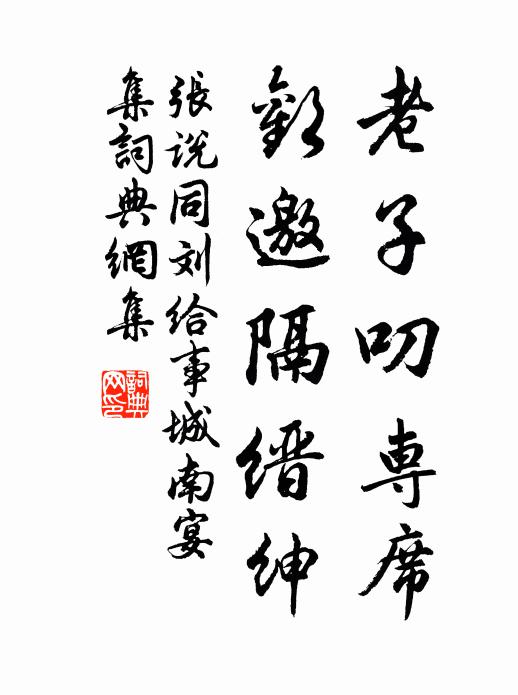 老子叨専席
歡邀隔缙绅
張说同刘给事城南宴
集詞典網集
詞典网印